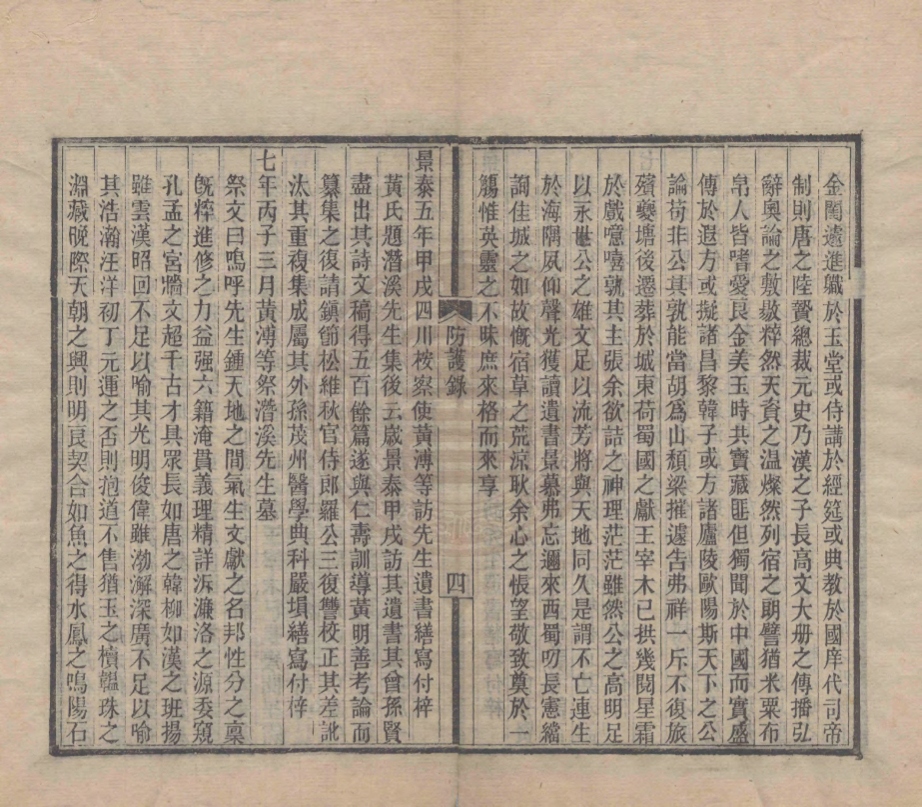 金閨遽進職於玉堂或侍講於經筵或典教於國庠代司帝
制則唐之陸贄總裁元史乃漢之子長高文大册之傳播弘
辭奧論之敷敭粹然天資之温燦然列宿之朗譬猶米粟布
帛人皆嗜愛良金美玉時共寶藏匪但獨聞於中國而實盛
傳於遐方或擬諸昌黎韓子或方諸廬陵歐陽斯天下之公
論苟非公其孰能當胡爲山頹梁摧遽告弗祥一斥不復旅
殯夔塘後遷葬於城東荷蜀國之獻王宰木已拱幾閱星霜
於戲噫嘻孰其主張余欲詰之神理茫茫雖然公之高明足
以永世公之雄文足以流芳將與天地同久是謂不亡連生
於海隅夙仰聲光獲讀遺書景慕弗忘邇來西蜀叨長憲綱
詢佳城之如故慨宿草之荒涼耿余心之悵望敬致奠於一
觴惟英靈之不昧庶來格而來享
防護錄
四
景泰五年甲戌四川按察使黃溥等訪先生遺書繕寫付梓
黃氏題潛溪先生集後云歲景泰甲戌訪其遺書其曾孫賢
盡出其詩文稿得五百餘篇遂與仁壽訓導黃明善考論而
纂集之復請鎮節松維秋官侍郎羅公三復讐校正其差訛
汰其重複集成屬其外孫茂州醫學典科嚴塤繕寫付梓
七年丙子三月黃溥等祭潛溪先生墓
祭文曰嗚呼先生鍾天地之間氣生文獻之名邦性分之稟
旣粹進修之力益强六籍淹貫義理精詳泝濂洛之源委窺
孔孟之宮牆文超千古才具眾長如唐之韓柳如漢之班揚
雖雲漢昭回不足以喻其光明俊偉雖渤澥深廣不足以喻
其浩瀚汪洋初丁元運之否則抱道不售猶玉之櫝韞珠之
淵藏晚際天朝之興則明良契合如魚之得水鳳之鳴陽石